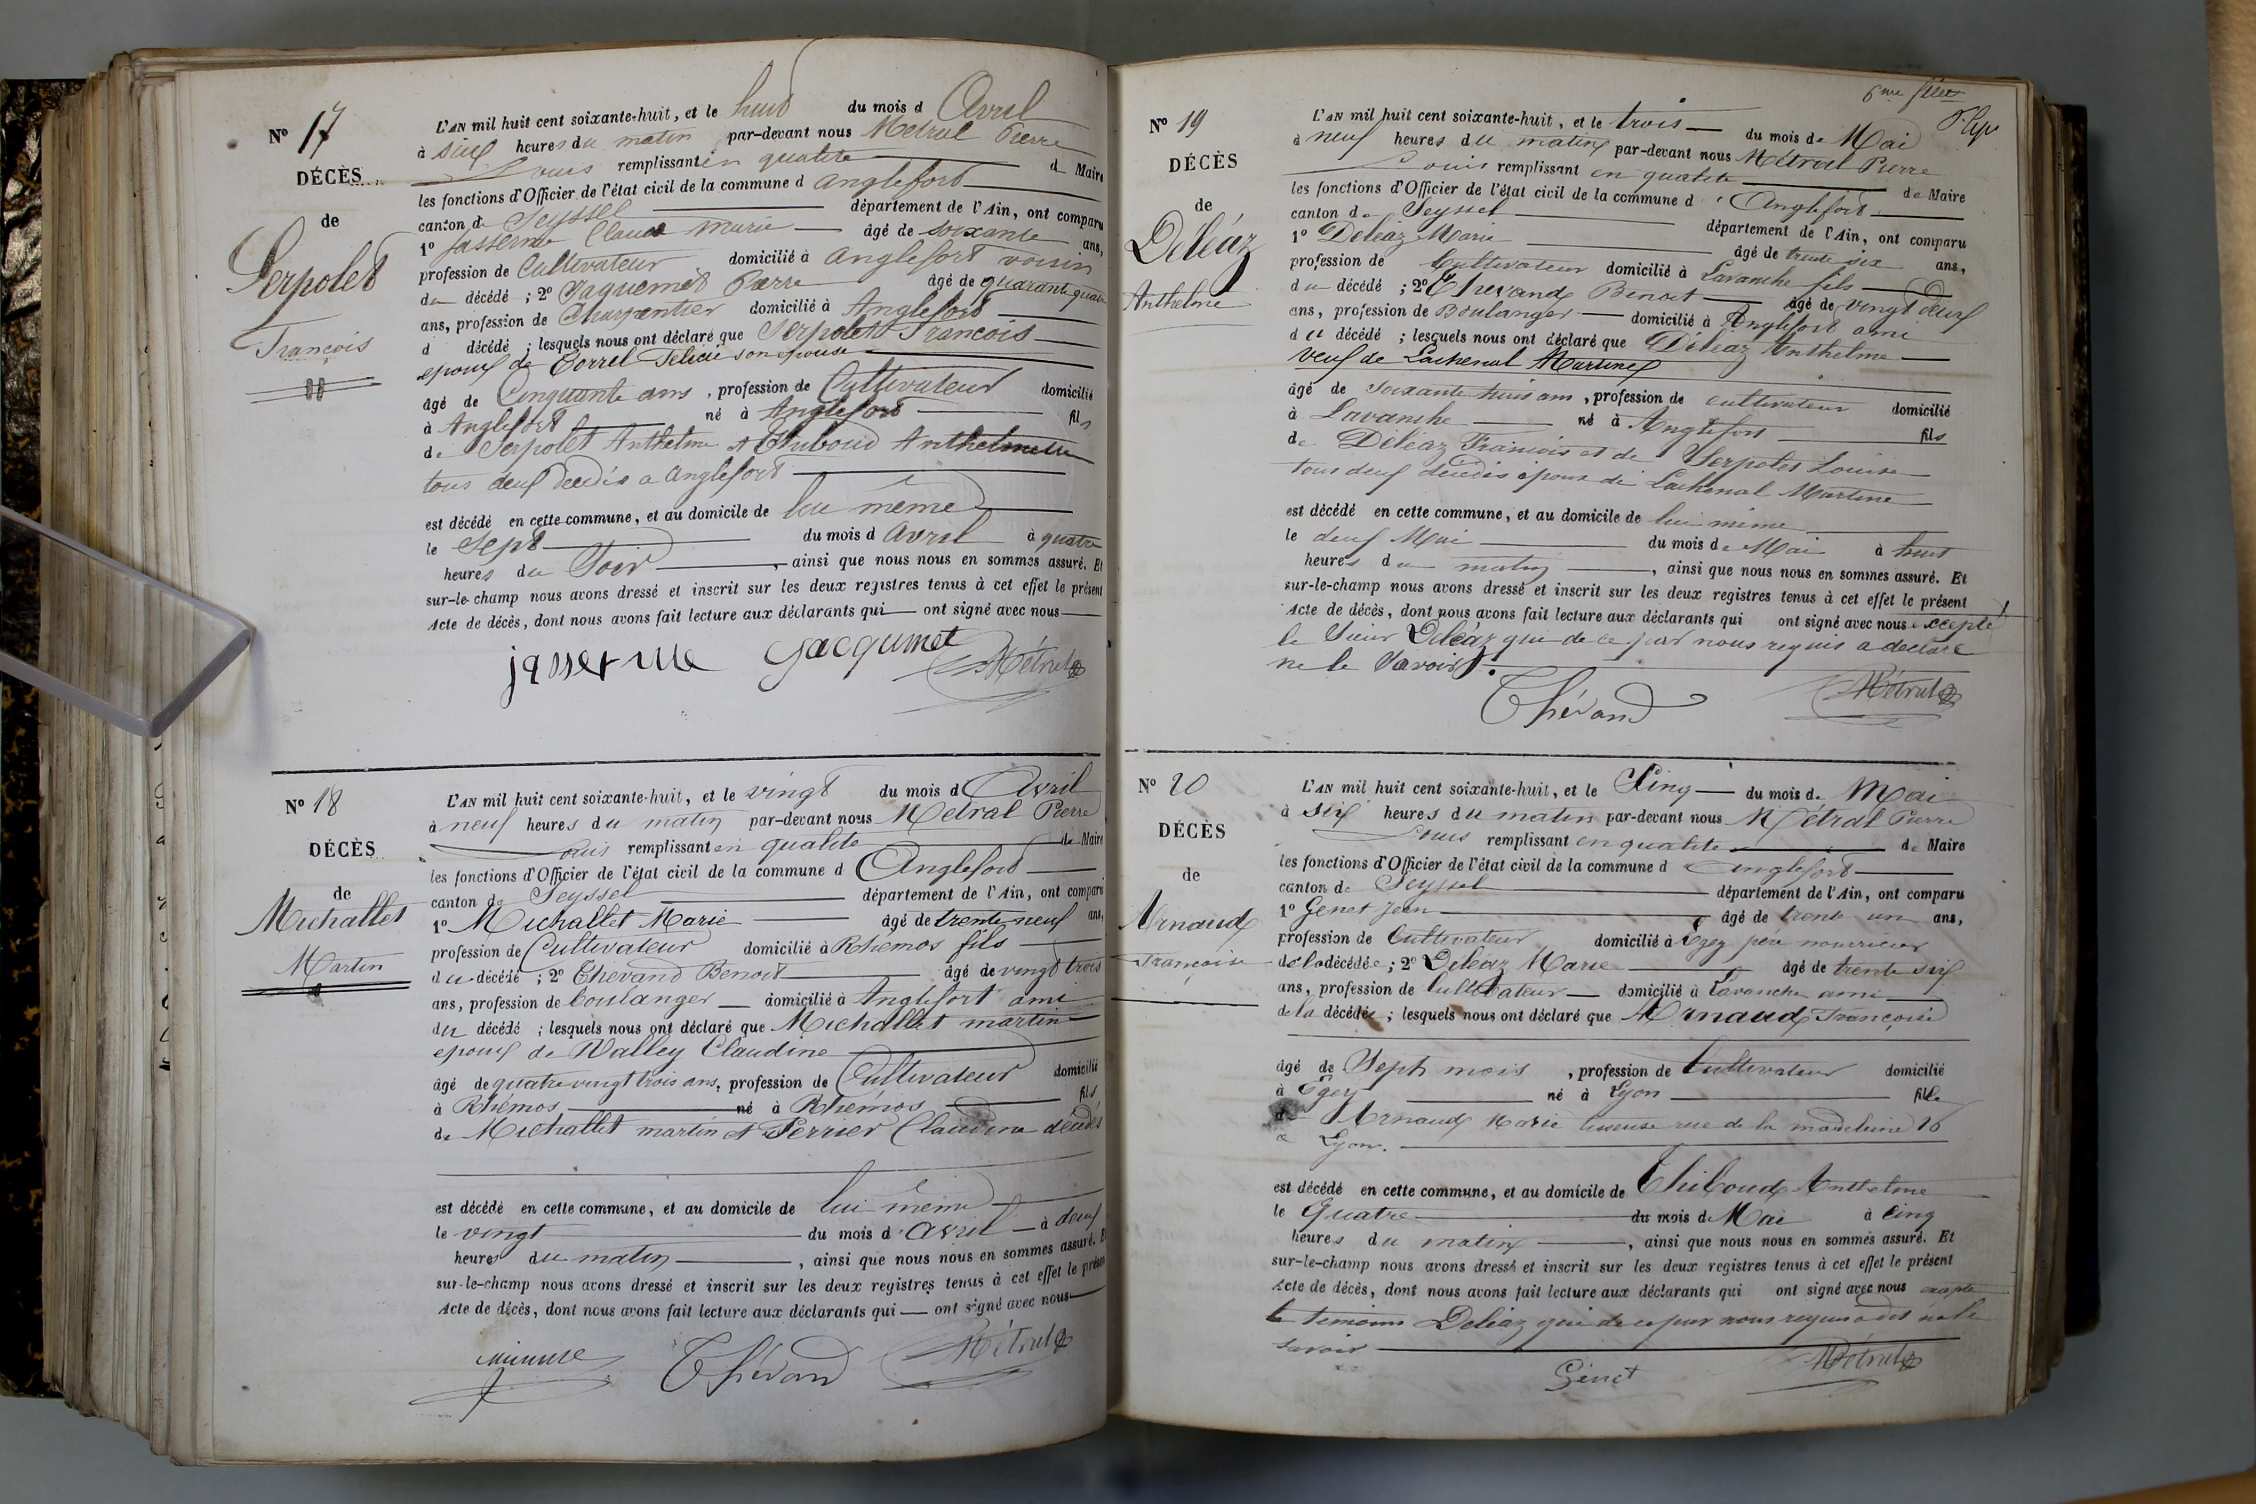 Nº 17
DÉCÈS
de
Serpolet
François
L'AN mil huit cent soixante-huit, et le huit du mois d Avril
à six heures du matin par-devant nous Métral Pierre
Louis remplissant en qualité de Maire
les fonctions d'Officier de l'état civil de la commune d Anglefort
canton de Seyssel département de l'Ain, ont comparu
1º Jasserme Claude Marie âgé de soixante ans,
profession de Cultivateur domicilié à Anglefort voisin
du décédé ; 2º Jaquemet Pierre âgé de quarante quatre
ans, profession de Charpentier domicilié à Anglefort
d décédé ; lesquels nous ont déclaré que Serpolet François
epoux de Borrel Felicie son epouse
âgé de Cinquante ans , profession de Cultivateur domicilié
à Anglefort né à Anglefort fils
de Serpolet Anthelme et Thiboud Anthelmette
tous deux decedés a Anglefort
est décédé en cette commune, et au domicile de lui même
le Sept du mois d Avril à quatre
heures du Soir , ainsi que nous nous en sommes assuré. Et
sur-le-champ nous avons dressé et inscrit sur les deux registres tenus à cet effet le présent
Acte de décès, dont nous avons fait lecture aux déclarants qui ont signé avec nous
jasserme Jacqumet Métral
Nº 18
DÉCÈS
de
Michallet
Martin
L'AN mil huit cent soixante-huit, et le vingt du mois d Avril
à neuf heures du matin par-devant nous Métral Pierre
Louis remplissant en qualité de Maire
les fonctions d'Officier de l'état civil de la commune d Anglefort
canton de Seyssel département de l'Ain, ont comparu
1º Michallet Marie âgé de trente neuf ans,
profession de Cultivateur domicilié à Rhémos fils
du décédé ; 2º Chevand Benoit âgé de vingt trois
ans, profession de boulanger domicilié à Anglefort ami
du décédé ; lesquels nous ont déclaré que Michallet martin
epoux de Valley Claudine
âgé de quatre vingt trois ans, profession de Cultivateur domicilié
à Rhémos né à Rhémos fils
de Michallet martin et Perrier Claudine décédés
est décédé en cette commune, et au domicile de lui même
le vingt du mois d'avril à deux
heures du matin , ainsi que nous nous en sommes assuré. Et
sur-le-champ nous avons dressé et inscrit sur les deux registres tenus à cet effet le présent
Acte de décès, dont nous avons fait lecture aux déclarants qui ont signé avec nous
Chévand Métral
6me
Nº 19
DÉCÈS
de
Déléaz
Anthelme
L'AN mil huit cent soixante-huit, et le trois du mois de Mai
à neuf heures du matin par-devant nous Métral Pierre
Louis remplissant en qualité de Maire
les fonctions d'Officier de l'état civil de la commune d'Anglefort
canton de Seyssel département de l'Ain, ont comparu
1º Déléaz Marie âgé de trente six ans,
profession de Cultivateur domicilié à Lavanche fils
du décédé ; 2º Chevand Benoit âgé de vingt deux
ans, profession de Boulanger domicilié à Anglefort ami
du décédé ; lesquels nous ont déclaré que Déléaz Anthelme
veuf de Lachenal Martine
âgé de soixante huit ans , profession de cultivateur domicilié
à Lavanche né à Anglefort fils
de Déléaz François et de Serpolet Louise
tous deux décédés époux de Lachenal Martine
est décédé en cette commune, et au domicile de lui même
le deux Mai du mois de Mai à huit
heures du matin , ainsi que nous nous en sommes assuré. Et
sur-le-champ nous avons dressé et inscrit sur les deux registres tenus à cet effet le présent
Acte de décès, dont nous avons fait lecture aux déclarants qui ont signé avec nous excepté
le Sieur Déléaz que de ce par nous requis a déclaré
ne le Savoir.
Chévand Métral
Nº 20
DÉCÈS
de
Arnaud
Françoise
L'AN mil huit cent soixante-huit, et le Cinq du mois de Mai
à six heures du matin par-devant nous Métral Pierre
Louis remplissant en qualité de Maire
les fonctions d'Officier de l'état civil de la commune d Anglefort
canton de Seyssel département de l'Ain, ont comparu
1º Genet Jean âgé de trente un ans,
profession de Cultivateur domicilié à Egey père nourricier
de la décédée ; 2º Deléaz Marie âgé de trente six
ans, profession de Cultivateur domicilié à Lavanche ami
de la décédée ; lesquels nous ont déclaré que Arnaud Françoise
âgé de Sept mois , profession de Cultivateur domicilié
à Egey né à Lyon fille
de Arnaud Marie tisseuse rue de la madeleine 26
a Lyon.
est décédé en cette commune, et au domicile de Thiboud Anthelme
le Quatre du mois de Mai à Cinq
heures du matin , ainsi que nous nous en sommes assuré. Et
sur-le-champ nous avons dressé et inscrit sur les deux registres tenus à cet effet le présent
Acte de décès, dont nous avons fait lecture aux déclarants qui ont signé avec nous excepté
le temoins Deléaz qui de ce par nous requis a dit ne le
savoir
Génet Métral